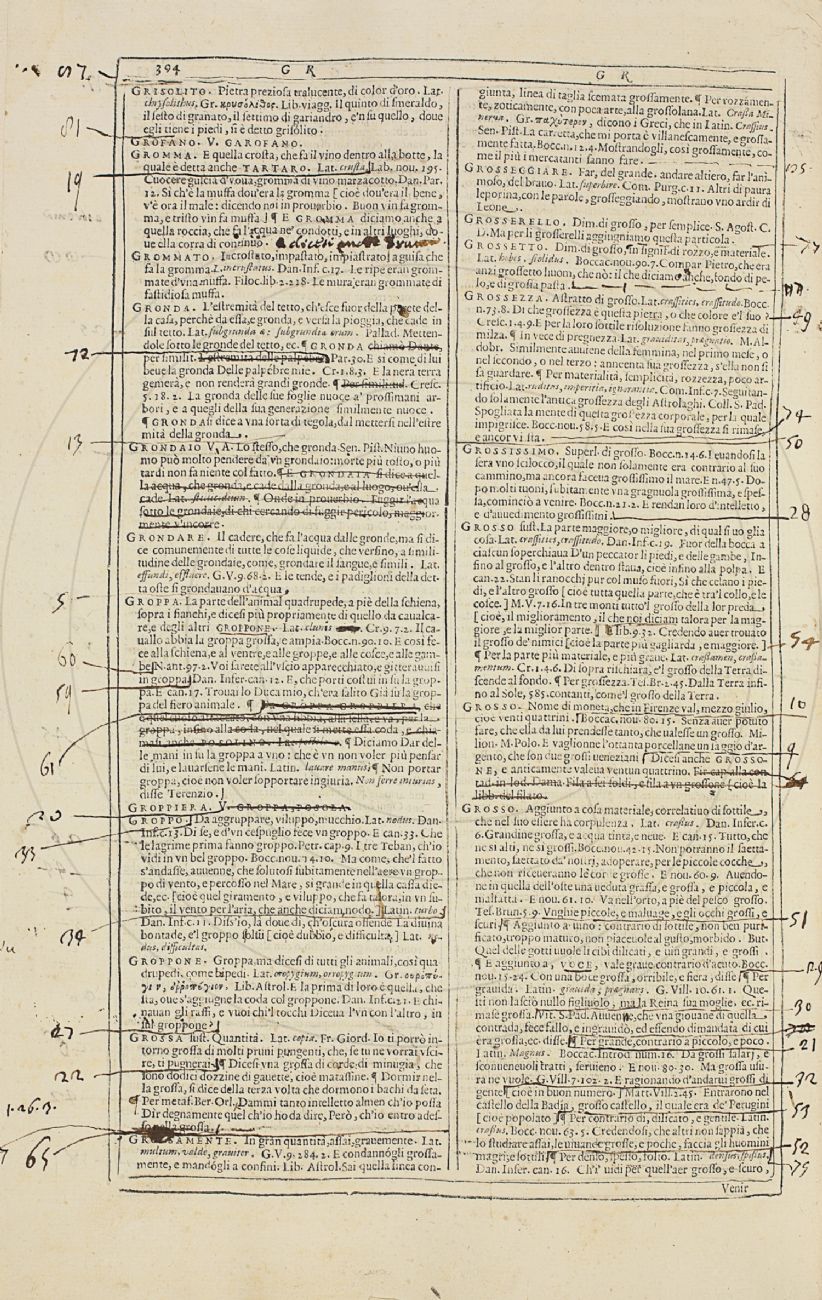 394 G R
G R
GRISOLITO. Pietra preziosa tralucente, di color d'oro. Lat.
chrysolithus, Gr. χρυσόλιθος. Lib. viagg. Il quinto di smeraldo,
il sesto di granato, il settimo di gariandro, e'n su quello, doue
egli tiene i piedi, si è detto grisolito.
GROFANO. V. GAROFANO.
GROMMA. E quella crosta, che fa il vino dentro alla botte, la
quale è detta anche TARTARO. Lat. crusta. Lab. nou. 195.
Cuocere guscia d'voua, gromma di vino marzacotto. Dan. Par.
12. Si ch'è la muffa dou'era la gromma [cioè dou'era il bene,
v'è ora il male: dicendo noi in prouerbio. Buon vin fa grom-
ma, e tristo vin fa muffa.] ¶ E GROMMA diciamo anche a
quella roccia, che fa l'acqua ne' condotti, e in altri luoghi, do
ue ella corra di continuo.
GROMMATO. Incrostato, impastato, impiastrato a guisa che
fa la gromma. L. incrustatus. Dan. Inf. c. 17. Le ripe eran grom-
mate d'vna muffa. Filoc. lib. 2. 228. Le mura eran grommate di
fastidiosa muffa.
GRONDA. L'estremità del tetto, ch'esce fuor della parete del-
la casa, perchè da essa, e gronda, e versa la pioggia, che cade in
sul tetto. Lat. subgrunda æ: subgrundarum. Pallad. Metten-
dole sotto le gronde del tetto, ec. ¶ GRONDA chiamò Dante,
per similit. L'estremità delle palpebre Par. 30. E si come di lui
beue la gronda Delle palpebre mie. Cr. 1. 8. 3. E la nera terra
gemerà, e non renderà grandi gronde. ¶ Per similitud. Cresc.
5. 18. 2. La gronda delle sue foglie nuoce a' prossimani ar-
bori, e a quegli della sua generazione similmente nuoce.
¶ GRONDA si dice a vna sorta di tegola, dal mettersi nell'estre
mità della gronda.
GRONDAIO V. A. Lo stesso, che gronda. Sen. Pist. Niuno huo-
mo può molto pendere da vn grondaio: morte più tosto, o più
tardi non fa niente col fatto. ¶ E GRONDAIA si dice a quel-
la acqua, che gronda, e cade dalla gronda, e al luogo, ou'ella
cade. Lat. stillicidium. ¶ Onde in prouerbio. Fuggir l'acqua
sotto le grondaie, di chi cercando di fuggir pericolo, maggior-
mente v'incorre.
GRONDARE. Il cadere, che fa l'acqua dalle gronde, ma si di-
ce comunemente di tutte le cose liquide, che versino, a simili-
tudine delle grondaie, come, grondare il sangue, e simili. Lat.
effundi, effluere. G. V. 9. 68. 2. E le tende, e i padiglioni della det-
ta oste si grondauano d'acqua.
GROPPA. La parte dell'animal quadrupede, a piè della schiena,
sopra i fianchi, e dicesi più propriamente di quello da caualca-
re, e degli altri GROPPONE. Lat. clunis Cr. 9. 7. 2. Il ca-
uallo abbia la groppa grossa, e ampia. Bocc. nou. 90. 10. E così fe-
ce alla schiena, e al ventre, e alle groppe, e alle cosce, e alle gam-
be. N. ant. 97. 2. Voi sarete all'vscio apparecchiato, e gitterauisi
in groppa. Dan. Infer. can. 12. E, che porti costui in su la grop-
pa. E can. 17. Trouai lo Duca mio, ch'era salito Già in su la grop-
pa del fiero animale. ¶
¶ Diciamo Dar del-
le mani in su la groppa a vno: che è vn non voler più pensar
di lui, e lauarsene le mani. Latin. lauare manus ¶ Non portar
groppa, cioè non voler sopportare ingiuria. Non ferre iniurias,
disse Terenzio.
GROPPIERA. V. GROPPA, POSOLA.
GROPPO. Da aggruppare, viluppo, mucchio. Lat. nodus. Dan.
Inf. c. 13. Di se, e d'vn cespuglio fece vn groppo. E can. 33. Che
le lagrime prima fanno groppo. Petr. cap. 9. I tre Teban, ch'io
vidi in vn bel groppo. Bocc. nou. 14. 10. Ma come, che'l fatto
s'andasse, auuenne, che solutosi subitamente nell'aere vn grop-
po di vento, e percosso nel Mare, si grande in quella cassa die-
de, ec. [cioè quel giramento, e viluppo, che fa talora, in vn su-
bito, il vento per l'aria, che anche diciam, nodo.] Latin. turbo
Dan. Inf. c. 11. Diss'io, là doue dì, ch'osura offende La diuina
bontade, e'l groppo solui [cioè dubbio, e difficultà,] Lat. no-
dus, difficultas.
GROPPONE. Groppa, ma dicesi di tutti gli animali, così qua
drupedi, come bipedi. Lat. oropygium, orropygium. Gr. οὐροπύ-
γιον, ὀῤῥοπύγιον. Lib. Astrol. E la prima di loro è quella, che
sta, oue s'aggiugne la coda col groppone. Dan. Inf. c. 21. E chi-
nauan gli raffi, e vuoi ch'i tocchi Diceua l'vn con l'altro, in
sul groppone?
GROSSA sust. Quantità. Lat. copia. Fr. Giord. Io ti porrò in-
torno grossa di molti pruni pungenti, che, se tu ne vorrai vsci-
re, ti pugnerai. ¶ Dicesi vna grossa di corde, di minugia, che
sono dodici dozzine di gauette, cioè matassine. ¶ Dormir nel-
la grossa, si dice della terza volta che dormono i bachi da seta.
¶ Per metaf. Ber. Orl. Dammi tanto intelletto almen ch'io possa
Dir degnamente quel ch'io ho da dire, Però, ch'io entro ades-
so alla grossa.
GROSSAMENTE. In gran quantità, assai, grauemente. Lat.
multum, valde, grauiter. G. V. 9. 284. 2. E condannógli grossa-
mente, e mandógli a confini. Lib. Astrol. Sai quella linea con-
giunta, linea di taglia scemata grossamente. ¶ Per rozzamen-
te, zoticamente, con poca arte, alla grossolana. Lat. Crassa Mi-
nerua. Gr. παχύτερον, dicono i Greci, che in Latin. Crassius.
Sen. Pist. La carretta, che mi porta è villanescamente, e grossa-
mente fatta. Bocc. n. 12. 4. Mostrandogli, così grossamente, co-
me il più i mercatanti fanno fare.
GROSSEGGIARE. Far, del grande. andare altiero, far l'ani-
moso, del brauo. Lat. superbire. Com. Purg. c. 11. Altri di paura
leporina, con le parole, grosseggiando, mostrano vno ardir di
Leone.
GROSSERELLO. Dim. di grosso, per semplice. S. Agost. C.
D. Ma per li grosserelli aggiugniamo questa particola.
GROSSETTO. Dim. di grosso, in signif. di rozzo, e materiale.
Lat. hebes. stolidus. Boccac. nou. 90. 7. Compar Pietro, che era
anzi grossetto huom, che nò: il che diciamo anche, tondo di pe-
lo, e di grossa pasta.
GROSSEZZA. Astratto di grosso. Lat. crassities, crassitudo. Bocc.
n. 73. 8. Di che grossezza è questa pietra, o che colore e'l suo?
Cresc. 1. 4. 9. E per la loro sottile risoluzione fanno grossezza di
milza. ¶ In vece di pregnezza. Lat. grauiditas, prægnatio. M. Al-
dobr. Similmente auuiene della femmina, nel primo mese, o
nel secondo, o nel terzo: anneenta sua grossezza, s'ella non si
fa guardare. ¶ Per materialità, semplicità, rozzezza, poco ar-
tificio. Lat. ruditas, imperitia, ignorantia. Com. Inf. c. 7. Seguitan-
do solamente l'antica grossezza degli Astrolaghi. Coll. S. Pad.
Spogliata la mente di questa grossezza corporale, per la quale
impigrisce. Bocc. nou. 58. 5. E così nella sua grossezza si rimase,
e ancor vi sta.
GROSSISSIMO. Superl. di grosso. Bocc. n. 14. 6. Leuandosi la
sera vno scilocco, il quale non solamente era contrario al suo
cammino, ma ancora faceua grossissimo il mare. E n. 47. 5. Do-
po molti tuoni, subitamente vna gragnuola grossissima, e spes-
sa, cominciò a venire. Bocc. n. 21. 2. E rendan loro d'intelletto,
e d'auuedimento grossissimi
GROSSO sust. La parte maggiore, o migliore, di qual si uoglia
cosa. Lat. crassities, crassitudo. Dan. Inf. c. 19. Fuor della bocca a
ciascun soperchiaua D'un peccator li piedi, e delle gambe, In-
fino al grosso, e l'altro dentro staua, cioè infino alla polpa. E
can. 22. Stan li ranocchi pur col muso fuori, Si che celano i pie-
di, e l'altro grosso [cioè tutta quella parte, che è tra'l collo, e le
cosce.] M. V. 7. 16. In tre monti tutto'l grosso della lor preda
[cioè, il miglioramento, il che noi diciam talora per la mag-
giore, e la miglior parte.] Lib. 9. 32. Credendo auer trouato
il grosso de' nimici [cioè la parte più gagliarda, e maggiore.]
¶ Per la parte più materiale, e più graue. Lat. crassamen, crassa-
mentum. Cr. 1. 4. 6. Di sopra rischiara, e'l grosso della Terra di-
scende al fondo. ¶ Per grossezza. Tes. Br. 2. 45. Dalla Terra infi-
no al Sole, 585. cotanti, come'l grosso della Terra.
GROSSO. Nome di moneta, che in Firenze val, mezzo giulio,
cioè venti quattrini. Boccac. nou. 80. 15. Senza auer potuto
fare, che ella da lui prendesse tanto, che ualesse un grosso. Mi-
lion. M. Polo. E vaglionne l'ottanta porcellane un saggio d'ar-
gento, che son due grossi ueneziani Dicesi anche GROSSO-
NE, e anticamente valeua ventun quattrino. Fir cap. alla con-
tad. in lod. Dama. Fila a sei soldi, e fila a vn grossone [cioè la
libb. del filato.
GROSSO. Aggiunto a cosa materiale, correlatiuo di sottile,
che nel suo essere ha corpulenza. Lat. crassus. Dan. Infer. c.
6. Grandine grossa, e acqua tinta, e neue. E can. 15. Tutto, che
ne sì alti, ne sì grossi. Bocc. nou. 42. 15. Non potranno il saetta-
mento, saettato da' nostri, adoperare, per le piccole cocche,
che non riceueranno le corde grosse. E nou. 60. 9. Auendo-
ne in quella dell'oste una ueduta grassa, e grossa, e piccola, e
malfatta. E nou. 61. 10. Va nell'orto, a piè del pesco grosso.
Tes. Brun. 5. 9. Vnghie piccole, e maluage, e gli occhi grossi, e
scuri ¶ Aggiunto a uino: contrario di sottile, non ben puri-
ficato, troppo maturo, non piaceuole al gusto, morbido. But.
Quel delle gotti uuole li cibi dilicati, e uin grandi, e grossi.
¶ E aggiunto a, VOCE, vale graue: contrario d'acuto. Bocc.
nou. 15. 24. Con una boce grossa, orribile, e fiera, disse ¶ Per
grauida. Latin. grauida, prægnans. G. Vill. 10. 61. 1. Que-
sti non lasciò nullo figliuolo, ma la Reina sua moglie, ec. ri-
mase grossa. Vit. S. Pad. Auuenne, che vna giouane di quella
contrada, fece fallo, e ingrauidò, ed essendo dimandata di cui
era grossa, ec. disse. ¶ Per grande, contrario a piccolo, e poco.
Latin. Magnus. Boccac. Introd. num. 16. Da grossi salarj, e
sconueneuoli tratti, seruieno. E nou. 80. 30. Ma grossa usu-
ra ne vuole. G. Vill. 7. 102. 2. E ragionando d'andarui grossi di
gente [cioè in buon numero.] Matt. Vill. 2. 45. Entrarono nel
castello della Badia, grosso castello, il quale era de' Perugini
[cioè popolato ¶ Per contrario di, dilicato, e gentile. Latin.
crassus. Bocc. nou. 63. 5. Credendosi, che altri non sappia, che
lo studiare assai, le uiuande grosse, e poche, faccia gli huomini
magri, e sottili ¶ Per denso, spesso, folto. Latin. densus, spissus.
Dan. Infer. can. 16. Ch'i' uidi per quell'aer grosso, e scuro,
Venir
81
19
72
13
5
60
59
61
20
33
34
27
22
1.26.3.
65
50
28
54
10
9
51
30
21
32
53
52